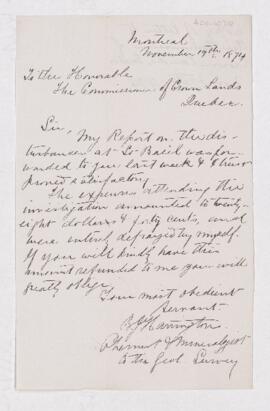 Montreal
November 19th 1874
To the Honorable
The Commissioner of Crown Lands
Quebec.
Sir,
My Report on the dis-
turbances at St Basil was for-
warded to you last week & I
proved satisfactory.
The expenses attending the
investigation amounted to twenty-
eight dollars & forty cents, and
were entirely defrayed by myself.
If you will kindly have this
amount refunded to me you will
greatly oblige
Your most obedient
Servant.
B J Harrington
Chemist & Mineralogist
to the Geol Survey